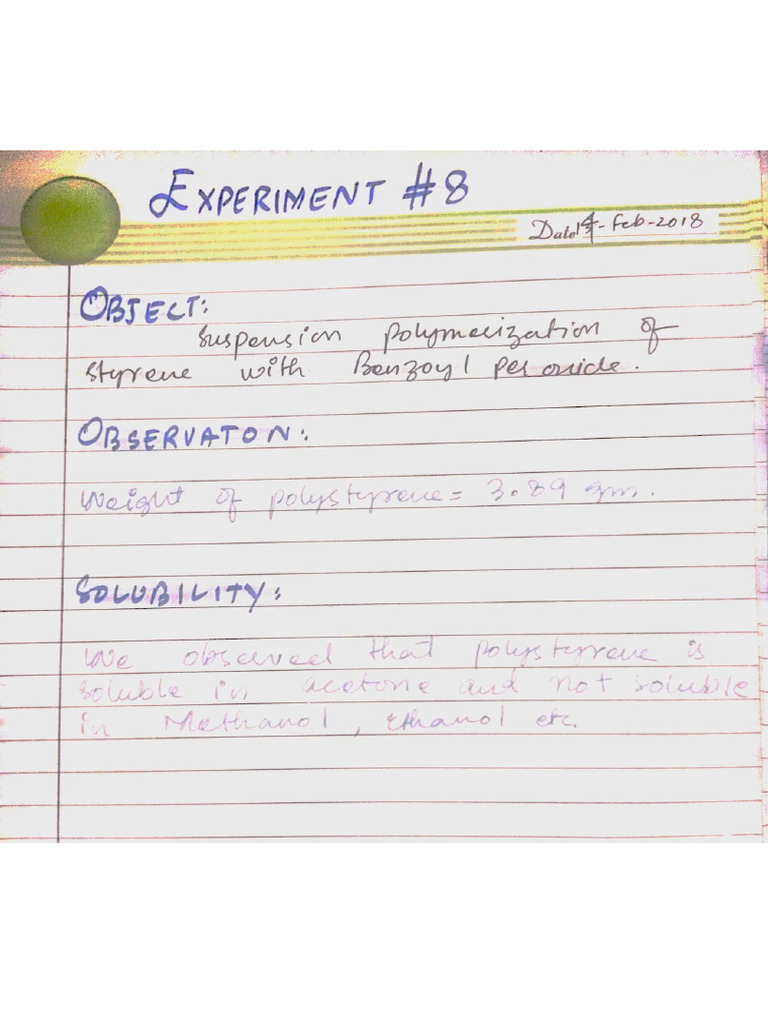 EXPERIMENT #8
Date 14-Feb-2018
OBJECT:
Suspension polymerization of
styrene with Benzoyl Peroxide.
OBSERVATON:
Weight of polystyrene = 3.89 gm.
SOLUBILITY:
We observed that polystyrene is
soluble in acetone and not soluble
in Methanol, Ethanol etc.